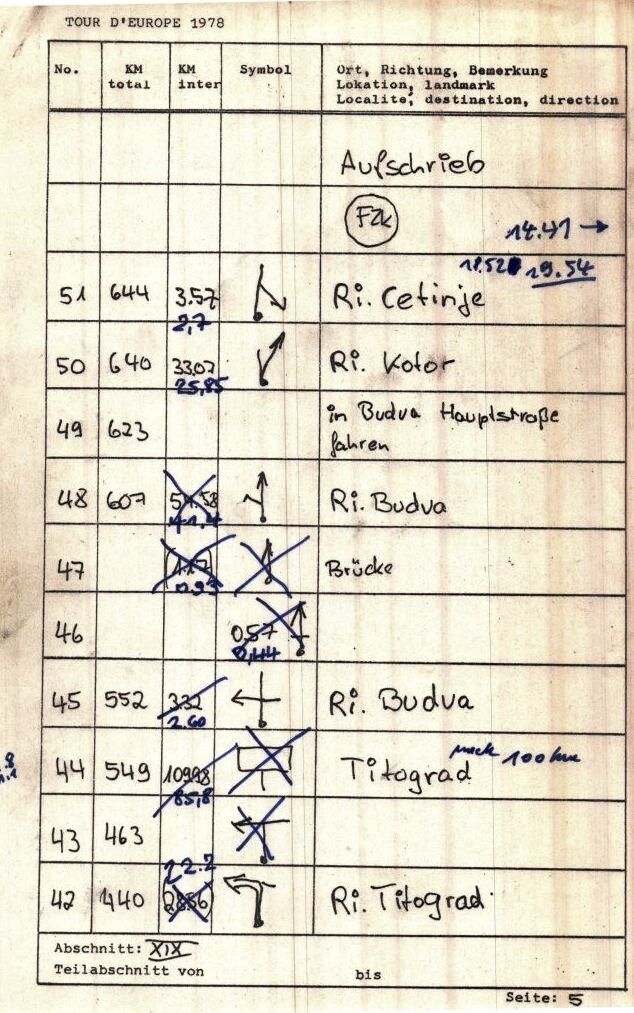 TOUR D'EUROPE 1978
No. KM total KM inter Symbol Ort, Richtung, Bemerkung
Lokation, landmark
Localité, destination, direction
Aufschrieb
FZK 14.41 →
19.54
51 644 3.57 Ri. Cetinje
2,7
50 640 33.07 Ri. Kotor
25,85
49 623 in Budva Hauptstraße
fahren
48 607 Ri. Budva
41,4
47 Brücke
0.93
46 0,57
0,44
45 552 3.32 Ri. Budva
2.60
44 549 109.98 Titograd 100 km
85,8
43 463
22.2
42 440 Ri. Titograd
Abschnitt: XIX
Teilabschnitt von bis
Seite: 5